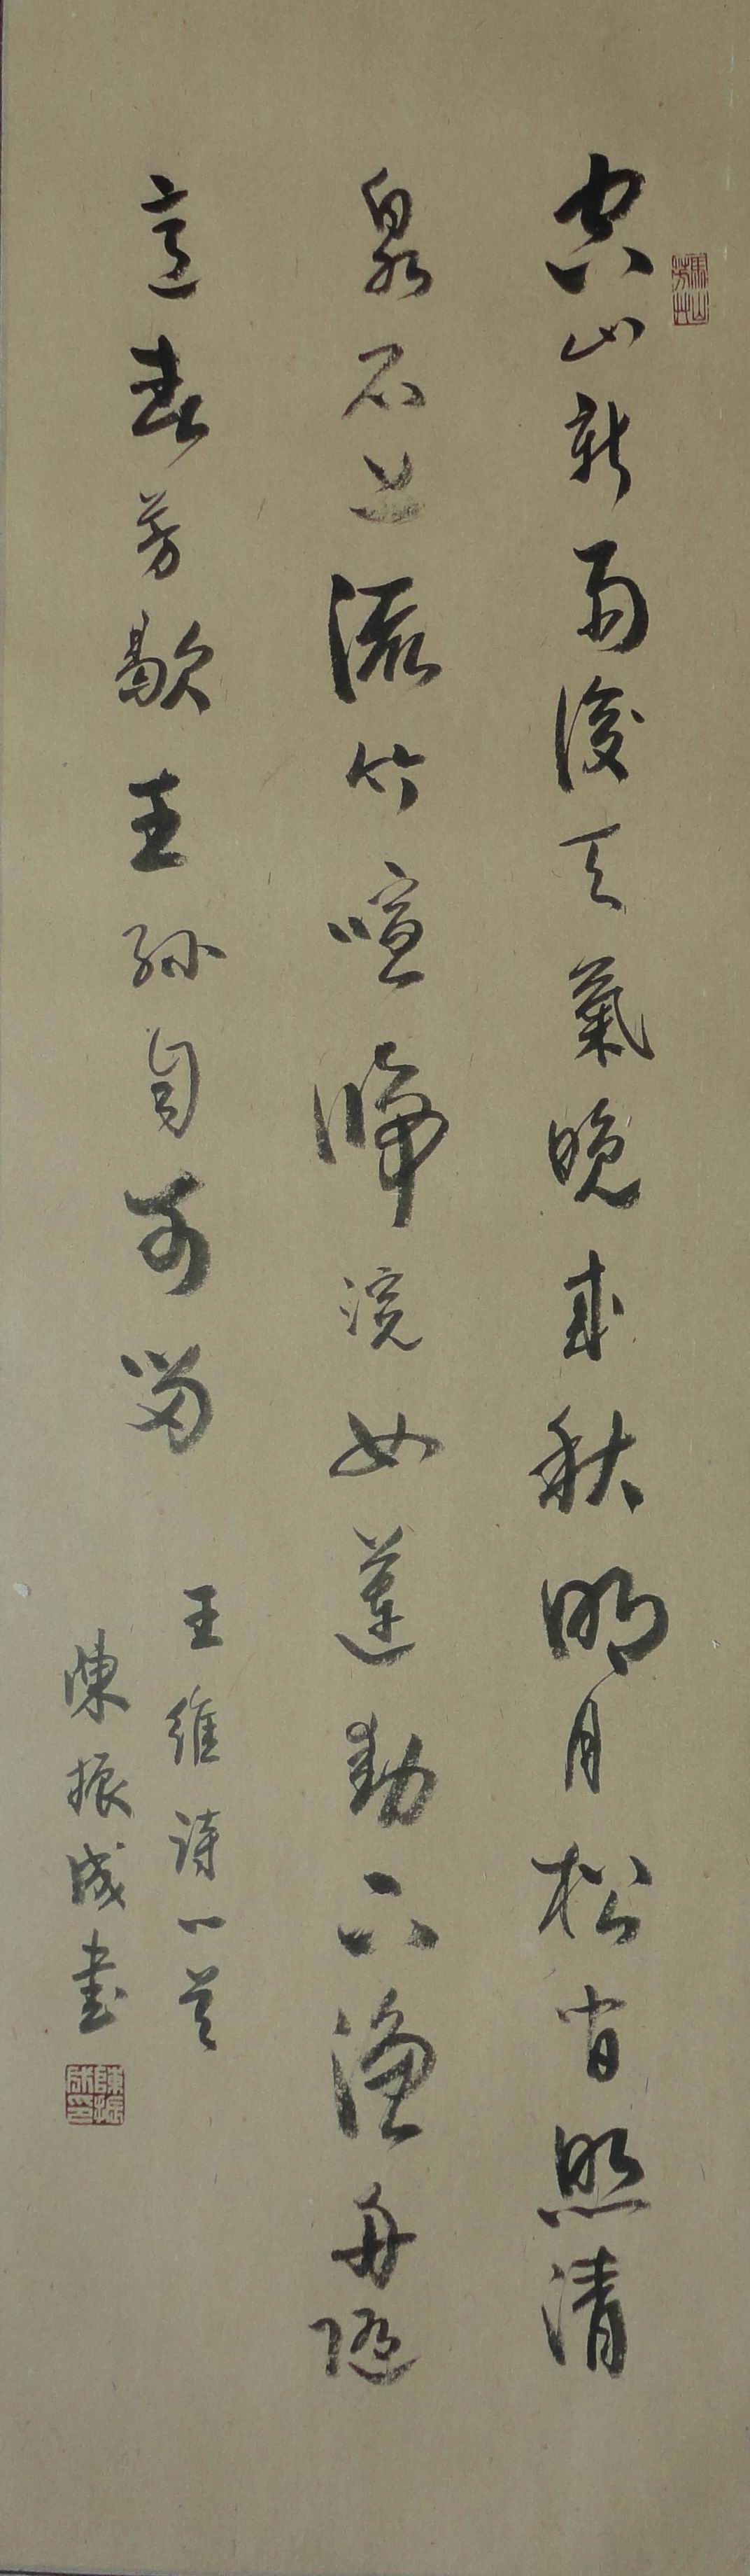 空山新雨後天氣晚來秋明月松間照清
泉石上流竹喧歸浣女蓮動下漁舟隨
意春芳歇王孫自可留
王維詩一首
陳振成書
陳振成印